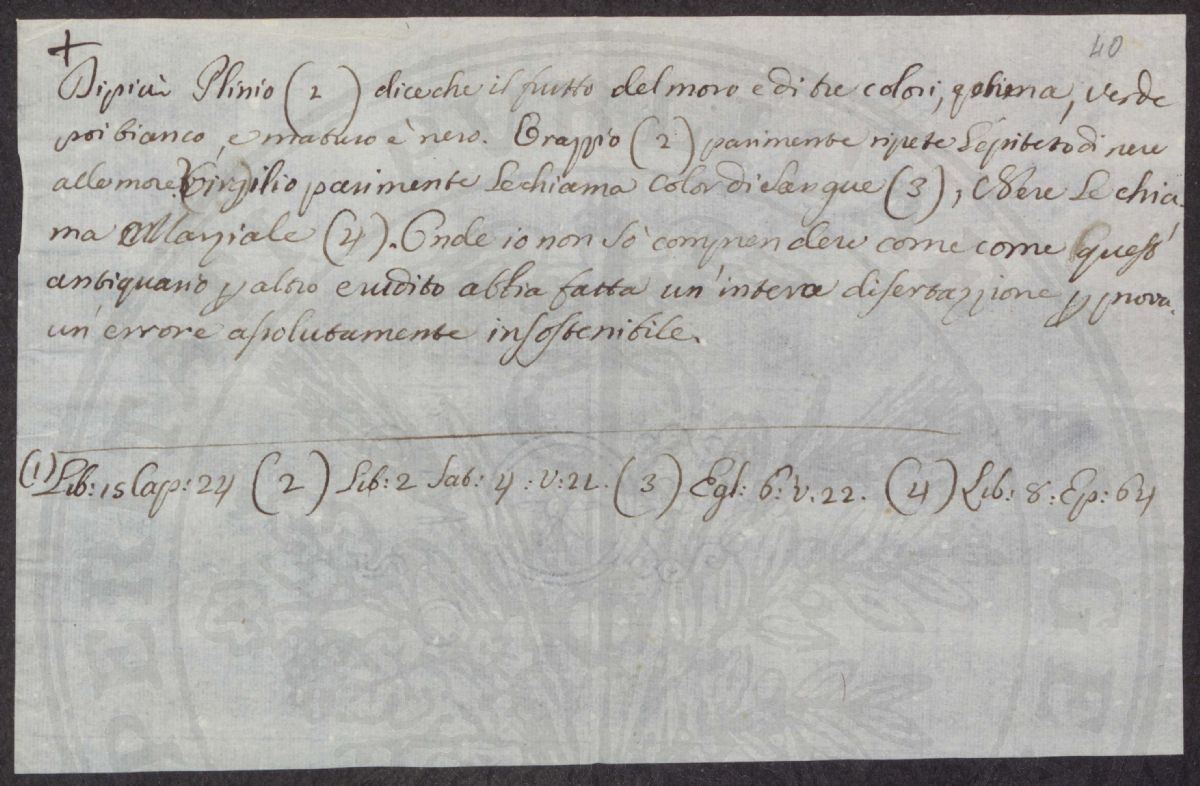 40
+
Di più Plinio (2) dice che il frutto del moro è di tre colori, prima, verde
poi bianco, e maturo è nero. Orazzio (2) parimente ripete l'epiteto di nere
alle more. Virgilio parimente le chiama color di sangue (3), e Nere le chia-
ma Marziale (4). Onde io non sò comprendere come come quest'
antiquario p altro erudito abbia fatta un'intera disertazzione p prova.
un'errore assolutamente insostenibile.
(1) Lib: 15 Cap: 24 (2) Lib: 2 Sat: 4: v: 22. (3) Egl: 6: v. 22. (4) Lib: 8: Ep: 64